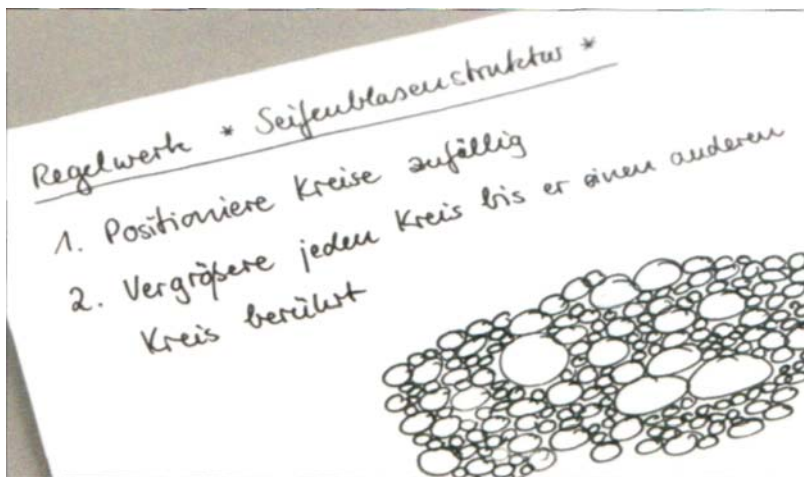 Regelwerk * Seifenblasenstruktur *
1. Positioniere Kreise zufällig
2. Vergrößere jeden Kreis bis er einen anderen
Kreis berührt